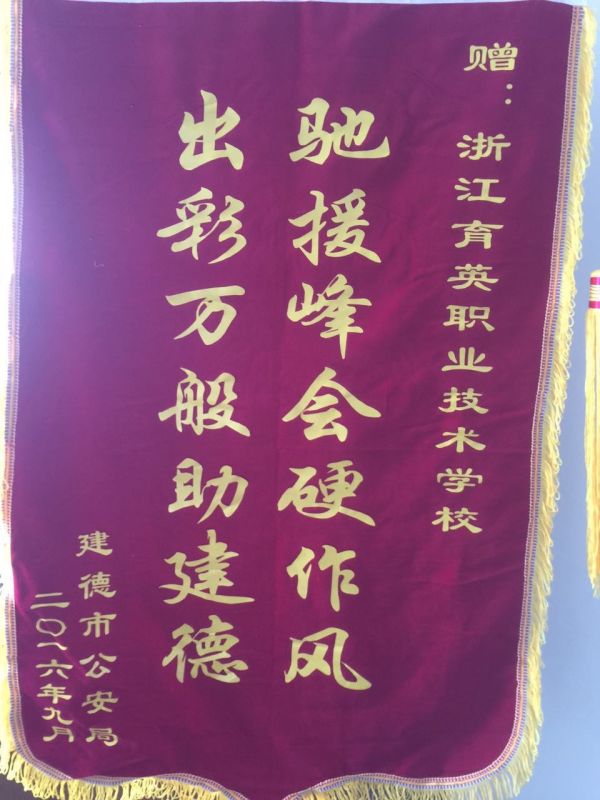 赠：浙江育英职业技术学校
驰援峰会硬作风
出彩万般助建德
建德市公安局
二〇一六年九月